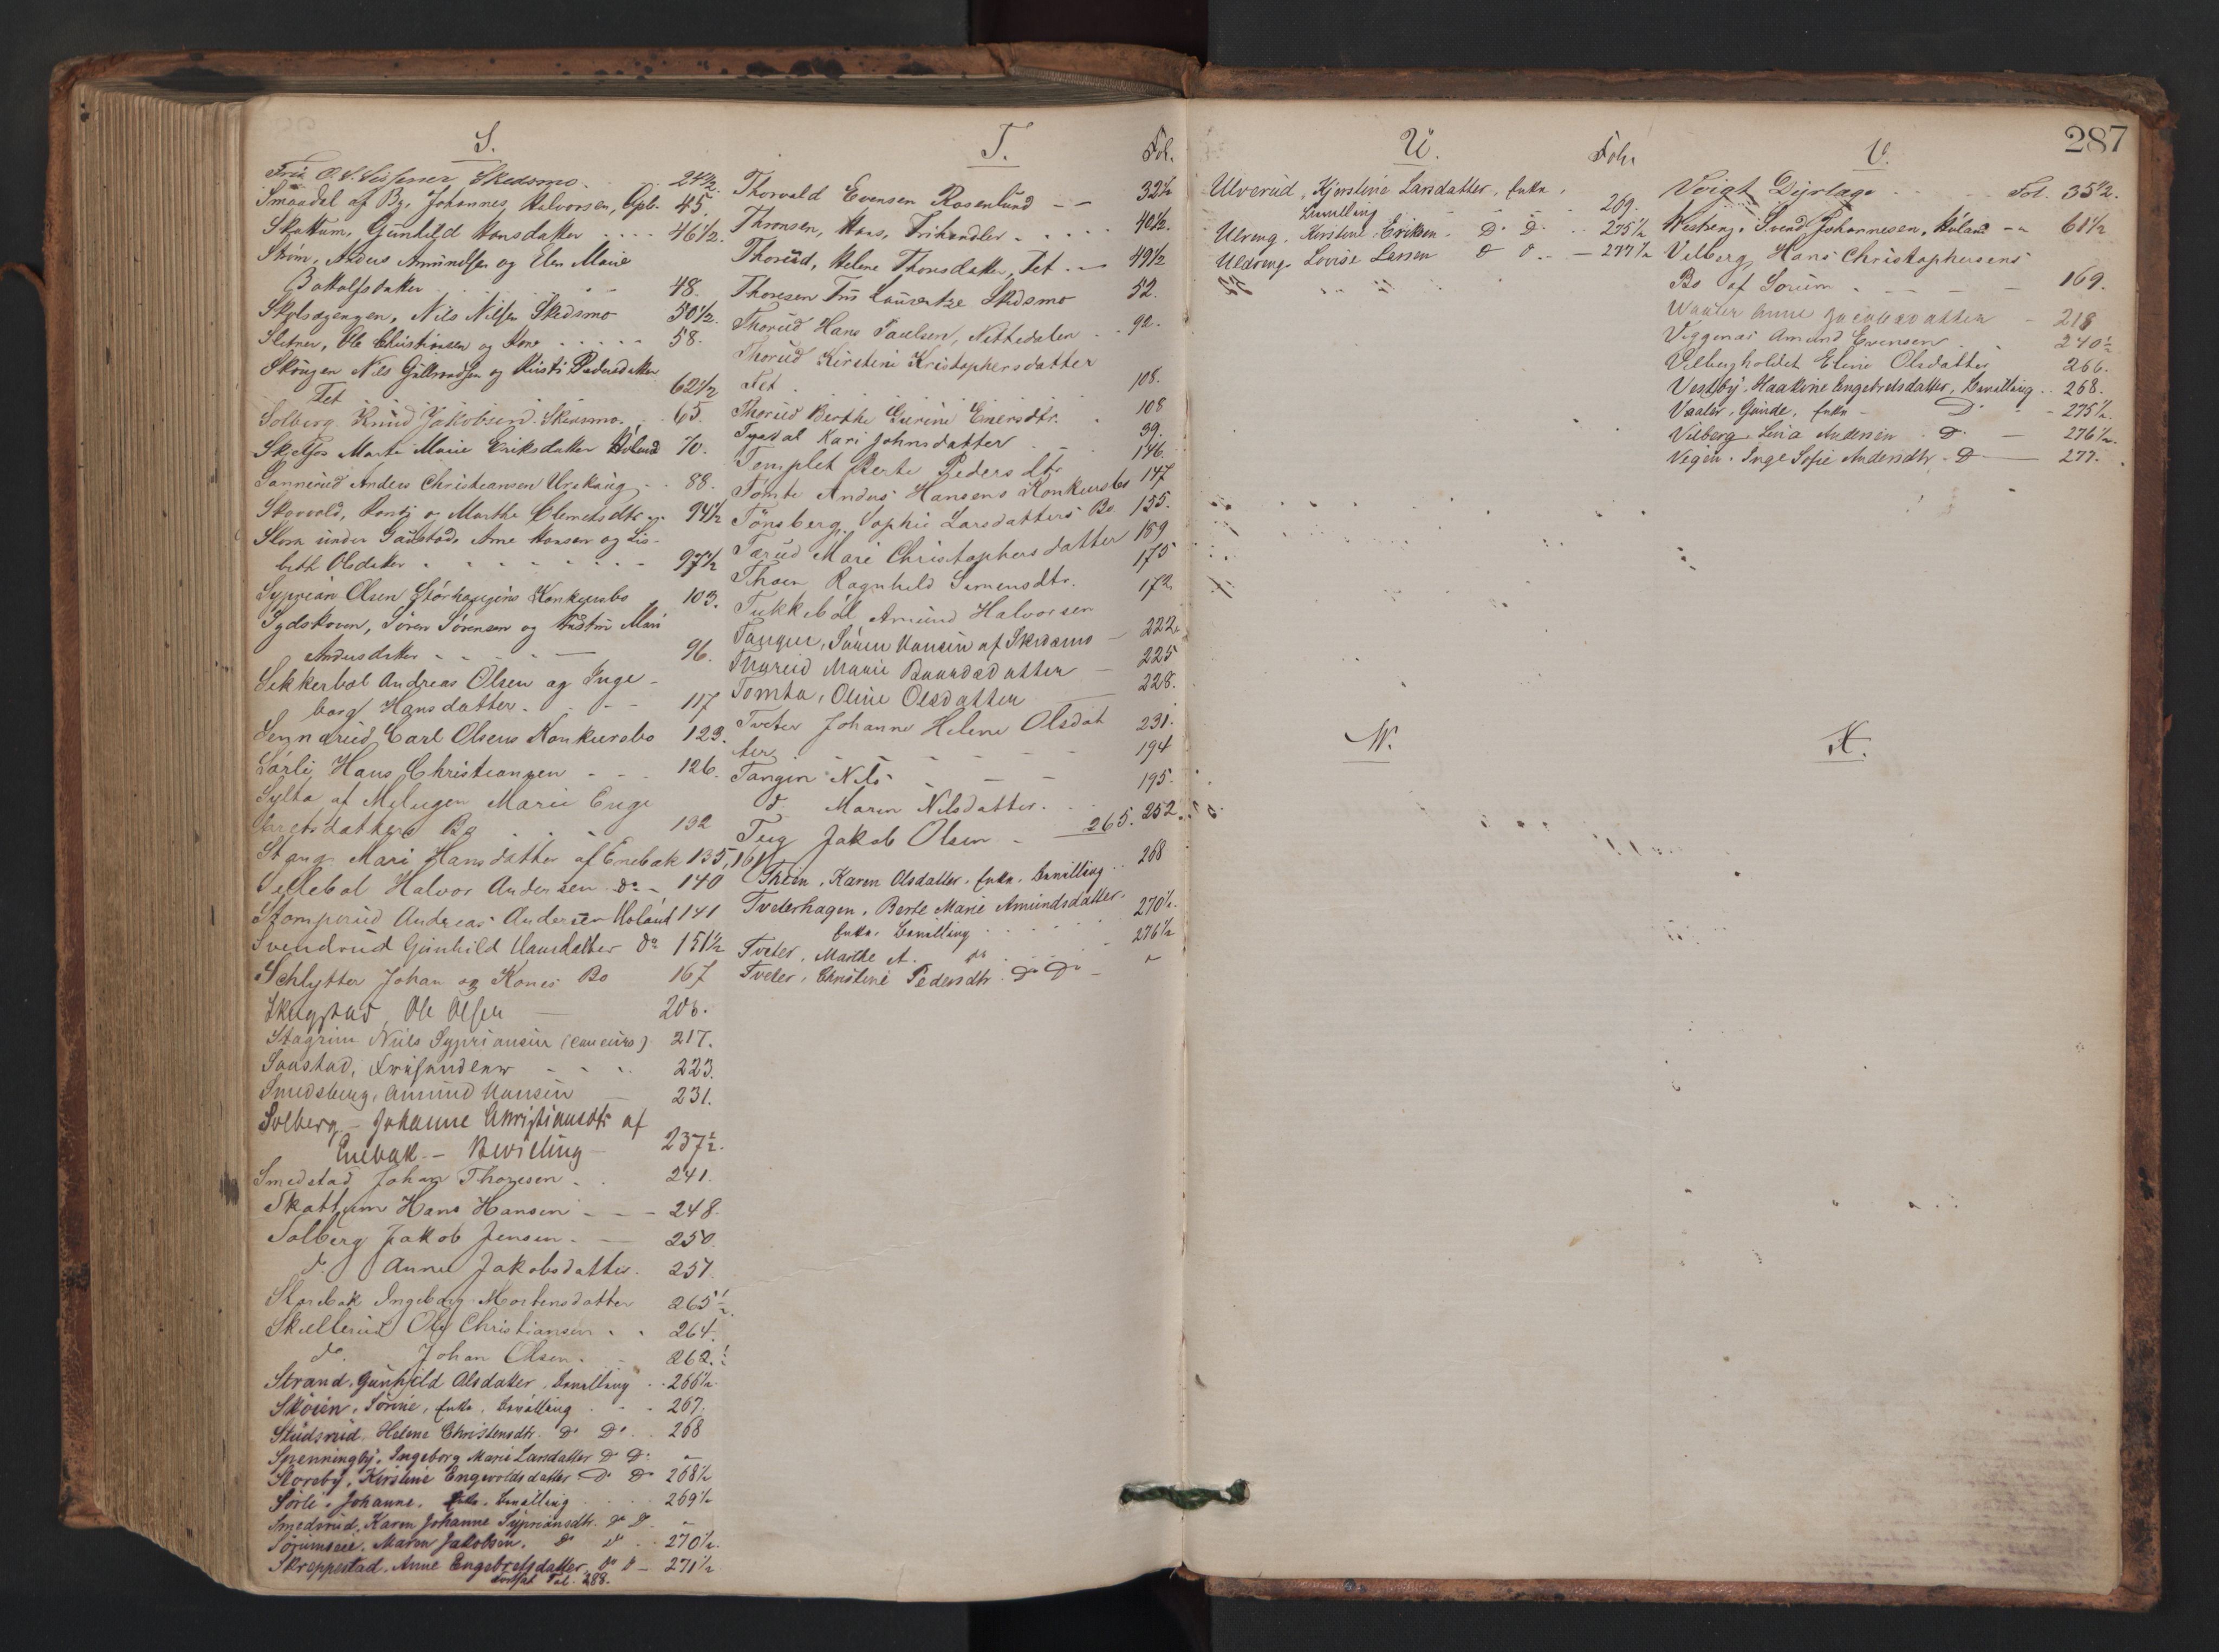 S.
Fru O. S. Skedsmo. 24½.
Smaadal af By, Johannes Halvorsen, 45.
Skattum, Gunhild Hansdatter .... 46½.
Strøm, Anders Amundsen og Elen Marie
48.
Nils Nilsen Skedsmo 50½.
Sletner, Ole Christiansen og Kone ..... 58.
Nils og Pedersdatter
Fet 62½
Solberg Knud Jakobsen Skedsmo. 65.
Marte Marie Eriksdatter Høland 70.
Sannerud Anders Christiansen Urskoug .. 88.
Skovold, og Marthe Clemetsdtr 94½
under Arne Hansen og Lis-
beth Olsdatter 97½
Syprian Olsen Konkursbo 103.
Sydskoven, Søren Sørensen og Mari
Andersdatter 96.
Sekkerbøl Andreas Olsen og Inge-
borg Hansdatter. 117
Sennerud Carl Olsens Konkursbo 123.
Sørli Hans Christiansen 126.
Sylta af Marie Enge
bretsdatters Bo 132
Stang Mari Hansdatter af Enebak 135, 161
Sellebøl Halvor Andersen do 140
Stomperud Andreas Andersen Høland 141
Svendrud Gunhild Hansdatter do 151½
Schlytter Johan og Kones Bo 167
Skugstad, Ole Olsen 206.
Nils Sypriansen 217.
Saastad, 223.
Smedsberg, Amund Hansen 231.
Solberg – Johanne Christiansdtr af
Enebak – Bevilling – 237½.
Smedstad Johan Thoresen . . 241.
Skattum Hans Hansen 248.
Solberg Jakob Jensen. 250.
d. Anne Jakobsdatter. 257.
Storebak Ingeborg Mortensdatter 265½.
Skullerud Ole Christiansen 264.
do. Johan Olsen. 262.½
Strand, Gunhild Olsdatter, Bevilling . . 266½
Skøien, Sørine, Enke, Bevilling . . 267.
Studsrud, Helene Christensdtr. Do Do. 268
Spenningby, Ingeborg Marie Larsdatter Do Do. –
Storeby, Kirstine Engevoldsdatter Do Do 268½
Sørli, Johanne, Enke, Bevilling 269½
Smedsrud, Karen Johanne Sypriansdtr. Do Do –
Sørumseie, Maren Jakobsen. do do . . 270½.
Skreppestad, Anne Engebretsdatter, do do – 271½
Fortsat Fol. 288.
T. Fol.
Thorvald Evensen Rosenlund – – 32½
Thronsen, Hans, Frihandler . . . . . 40½.
Thorud, Helene Thorsdatter, Fet . – 49½
Thoresen Fru Skedsmo 52.
Thorud Hans Paulsen, Nettedalen . . 92.
Thorud Kirstine Kristophersdatter
Fet . 108.
Thorud Berthe Gurine Enersdtr. 108
Kari Johnsdatter 39.
Templet Berte Pedersdtr 146.
Tomte Anders Hansens Konkursbo 147
Tønsberg, Sophie Larsdatters Bo 155.
Tærud Mari Christophersdatter 189
Thoen Ragnhild Simensdtr. 175
Tukkebøl Amund Halvorsen 172
Tangen, Søren Hansen af Skedsmo – 222.
Thurud Marie Baardsdatter – 225
Tomta, Oline Olsdatter 228.
Tveter Johanne Helene Olsdat 231.
ter 194
Tangen Nils 195.
d. Maren Nilsdatter. 252.
Teig Jakob Olsen – 265.
Thein, Karen Olsdatter, Enke, Bevilling . . 268
Tveterhagen, Berte Marie Amundsdatter,
Enke, Bevilling 270½.
Tveter, Marthe A. do 276½
Tveter, Christine Pedersdtr. Do Do – –
U. Folio
Ulverud, Kjerstine Larsdatter, Enke,
Bevilling 269.
Ulreng, Kirstine Eriksen – Do Do. . . 275½
Uldreng, Lovise Larsen d d. . – 277½
V. 287
Voigt Dyrlæge Fol. 35½.
Westreng, Svend Johannesen, Høland – – 61½
Velberg, Hans Christophersens
Bo af Sørum 169.
Waaler Anne – 218
Viggenas Amund Evensen 240½
Eline Olsdatter 266.
Vestby, Haakine Engebretsdatter, Bevilling . . 268.
Vaaler, Gunde, Enke – Do – 275½.
Vilberg, Lina Andersen . Do. – 276½.
Vegen, Inge Sofie Andersdtr. Do – 277.
W.
X.